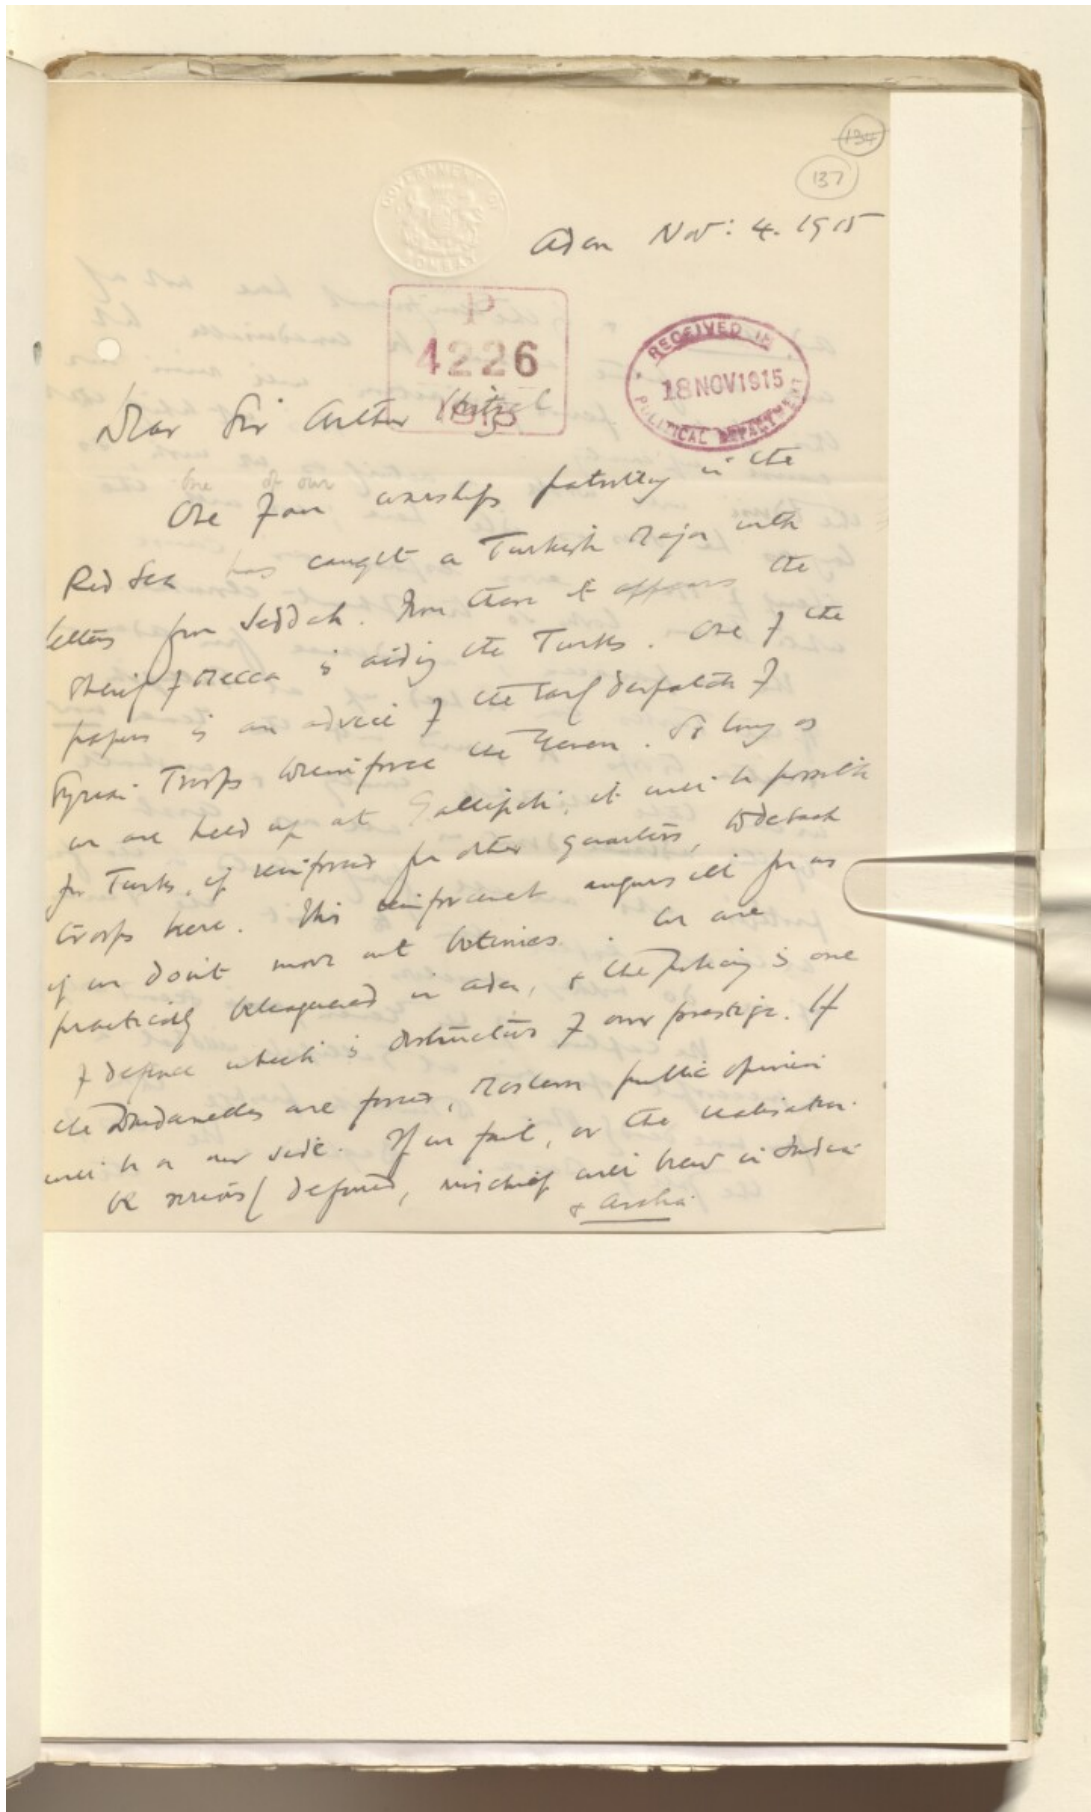 134
137
GOVERNMENT OF
BOMBAY
Aden Nov: 4. 1915
P
4226
1915
RECEIVED IN
18 NOV 1915
POLITICAL DEPARTMENT
Dear Sir Arthur Hirtzel
one of our
One of our warships patrolling in the
Red Sea has caught a Turkish Major with
letters from Jeddah. From them it appears the
Sherif of Mecca is aiding the Turks. One of the
papers is an advice of the early despatch of
Syrian Troops to reinforce the Yemen. So long as
we are held up at Gallipoli, it will be possible
for Turks, if reinforced from other quarters, to detach
troops here. This reinforcement augurs ill for us
if we don't move out betimes. We are
practically beleaguered in Aden, & the policy is one
of defence which is destructive of our prestige. If
the Dardanelles are forced, Moslem public opinion
will be on our side. If we fail, or the realisation
be seriously deferred, mischief will brew in India
& Arabia.